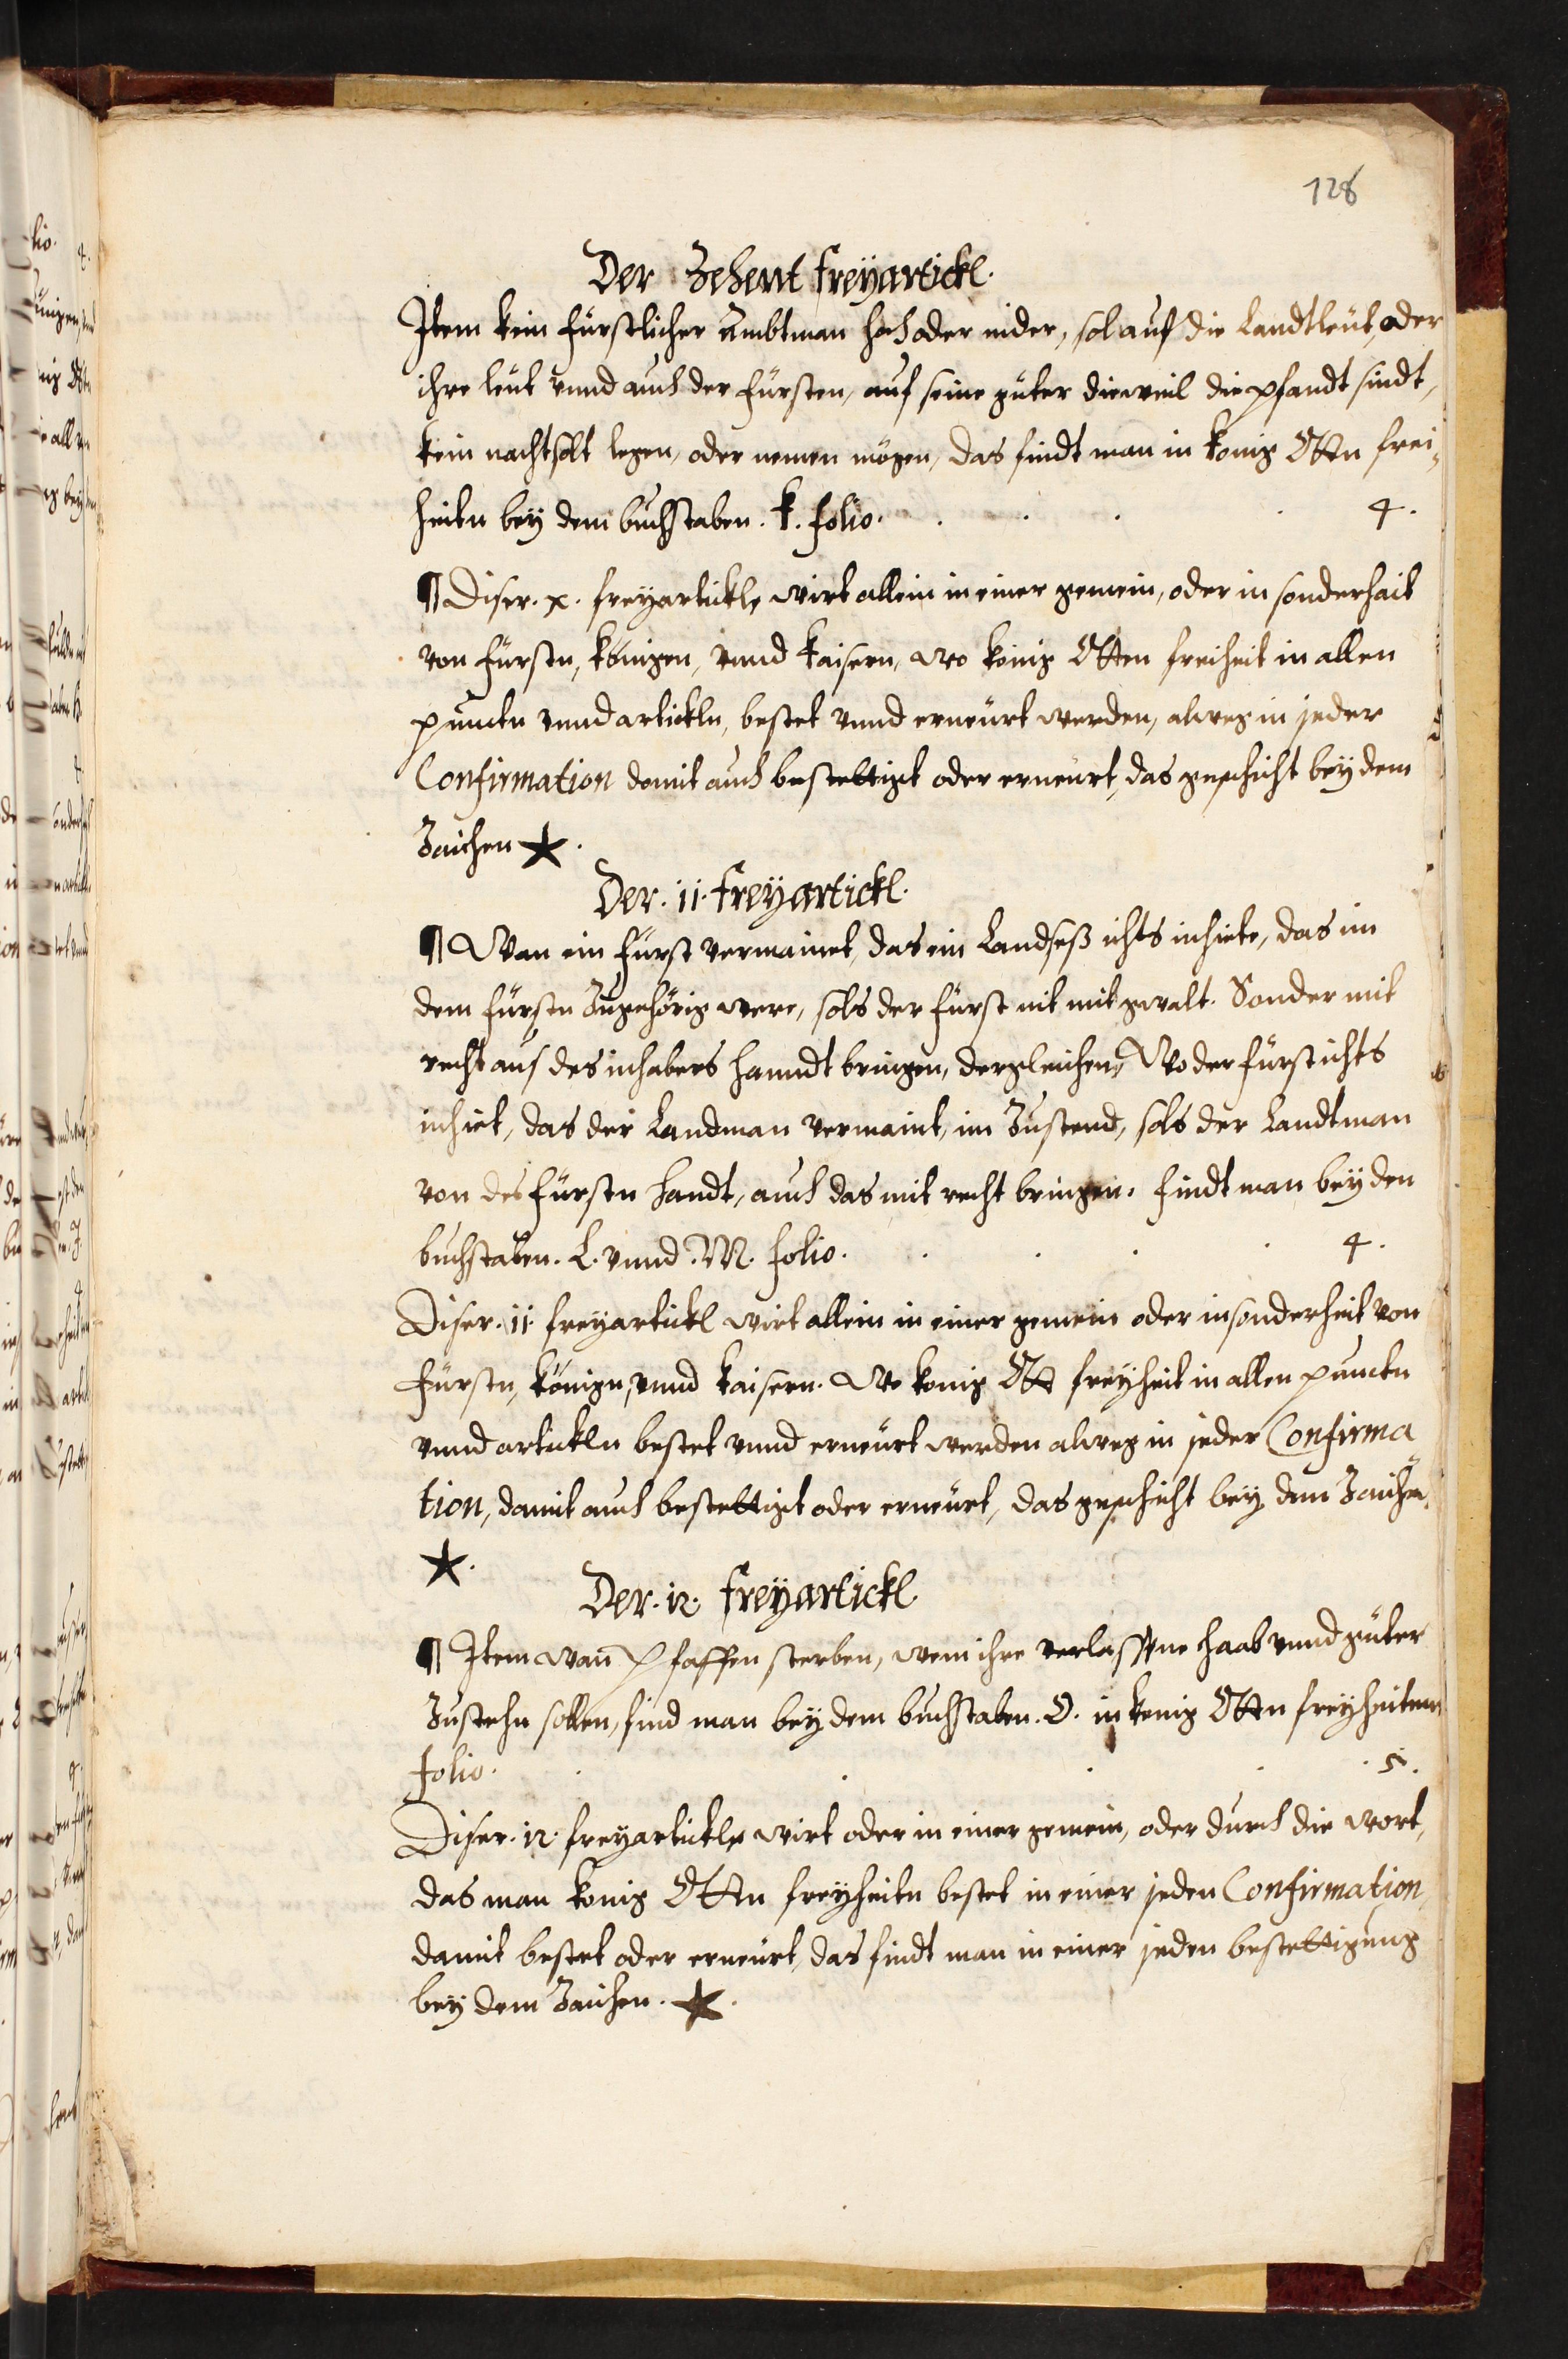 128
Der Zehent freÿartickl.
Item kein fürstlicher Ambtman hoch oder nider, sol auf die Landtleüt, oder
ihre leüt vnnd auch der fürsten, auf seine güter dieweil die pfandt sindt,
kein nachtsölt legen, oder nemen mögen, das findt man in konig Otten frei¬
heiten beÿ dem buchstaben. k. folio. . . . . 4.
¶ Diser. x. freyartickle, wirt allein in einer gemein, oder in sonderhait
von fürsten, königen, vnnd kaisern, wo könig Otten freiheit in allen
puncten vnnd artickln, bestet vnnd erneürt werden, alweg in jeder
Confirmation domit auch bestettigt oder erneürt, das geschicht beÿ dem
Zaichen ★.
Der. 11. freÿartickl.
¶ Wan ein fürst vermainet, das ein Landseß ichts inhiete, das im
dem fürsten Zugehörig were, sols der fürst nit mit gwalt. Sonder mit
recht aus des inhabers hanndt bringen, dergleichen, Wo der fürst ichts
inhiet, das der Landman vermaint, im Zustend, sols der Landtman
von des fürsten handt, auch das mit recht bringen. findt man beÿ den
buchstaben. L. vnnd. M. folio. . . . . 4.
Diser. 11. freyartickl wirt allein in einer gemein oder insonderheit von
fürsten, königen, vnnd kaisern. Wo konig Ott freÿheit in allen puncten
vnnd artickln bestet vnnd erneürt werden alweg in jeder Confirma
tion, damit auch bestettigt oder erneürt, das geschicht beÿ dem Zaichen
★.
Der. 12. freÿartickl.
¶ Item wan̄ Pfaffen sterben, wem ihre verlassne haab vnnd güter
Zustehn sollen, find man beÿ dem buchstaben. O. in konig Otten freÿheiten
folio. . . . . 5.
Diser. 12. freyartickle wirt oder in einer gemein, oder durch die wort,
das man konig Otten freÿheiten bestet in einer jeden Confirmation,
damit bestet oder erneürt, das findt man in einer jeden bestettigung
beÿ dem Zaichen. ★.